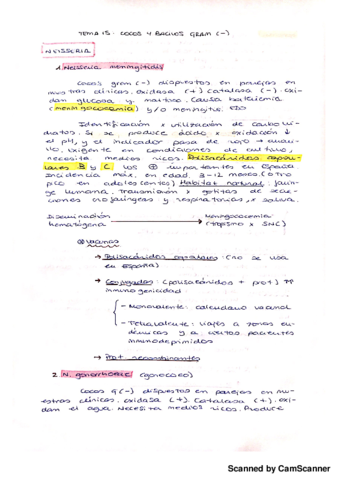 TEMA 15: COCOS Y BACILOS GRAM (-)
NEISSERIA
1. Neisseria meningitidis
Cocos gram (-) dispuestos en parejas en
muestras clínicas. Oxidasa (+) catalasa (-). oxi-
dan glucosa y maltosa. Causa bacteriemia
(meningococemia) y/o meningitis.
Identificación x utilización de carbohi-
dratos. Si se produce ácido x oxidación ↓
el pH, y el indicador pasa de rojo → amari-
llo. Exigente en condiciones de cultivo,
necesita medios ricos. Polisacáridos capsu-
lares B y C los + importantes en España
Incidencia máx. en edad 3-12 meses (otro
pico en adolescentes) Habitat natural: farin-
ge humana. Transmisión x gotitas de secre-
ciones orofaríngeas y respiratorias, y saliva.
Diseminación → Meningococemia
hematógena (tropismo x SNC)
vacunas
→ Polisacáridos capsulares (no se usa
en España)
→ Conjugadas: (polisacáridos + prot) ↑↑
inmunogenicidad
- Monovalente: calendario vacunal
- Tetravalente: viajes a zonas en-
démicas y a ciertos pacientes
inmunodeprimidos
→ Prot recombinantes
2. N. gonorrhoeae (gonococo)
Cocos G(-) dispuestos en parejas en mue-
stras clínicas. oxidasa (+). Catalasa (+). oxi-
dan el agua. Necesita medios ricos. Produce
Scanned by CamScanner